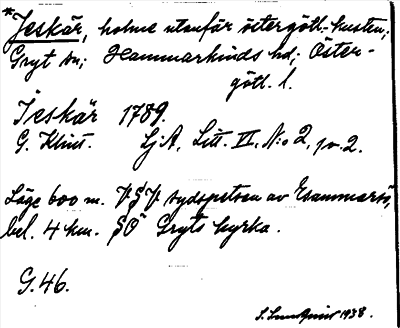 *Jeskär, holme utanför östergötl.-kusten;
Gryt sn; Hammarkinds hd; Öster-
götl. l.
Jeskär 1789.
G. Klint. SjA, Litt. II, N:o 2, p. 2.
Läge 600 m. VSV sydspetsen av
bel. 4 km. SÖ Gryts kyrka.
G. 46.
1938.